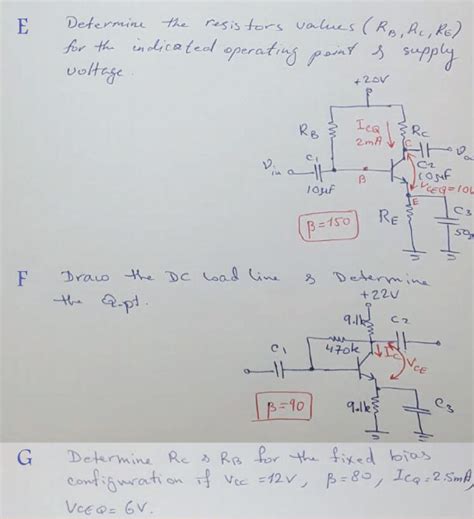 E Determine the resistors values (RB, RC, RE)
for the indicated operating point & supply
voltage.
+20V
RB
ICQ
2mA
RC
C
C1
Vin
10µF
B
C2
10µF
VCEQ=10V
E
RE
C3
50µ
β=150
F Draw the DC Load Line & Determine
the Q-pt.
+22V
9.1k
C2
470k
IC
C1
VCE
β=90
9.1k
C3
G Determine RC & RB for the fixed bias
configuration if VCC = 12V, β = 80, ICQ = 2.5mA,
VCEQ = 6V.